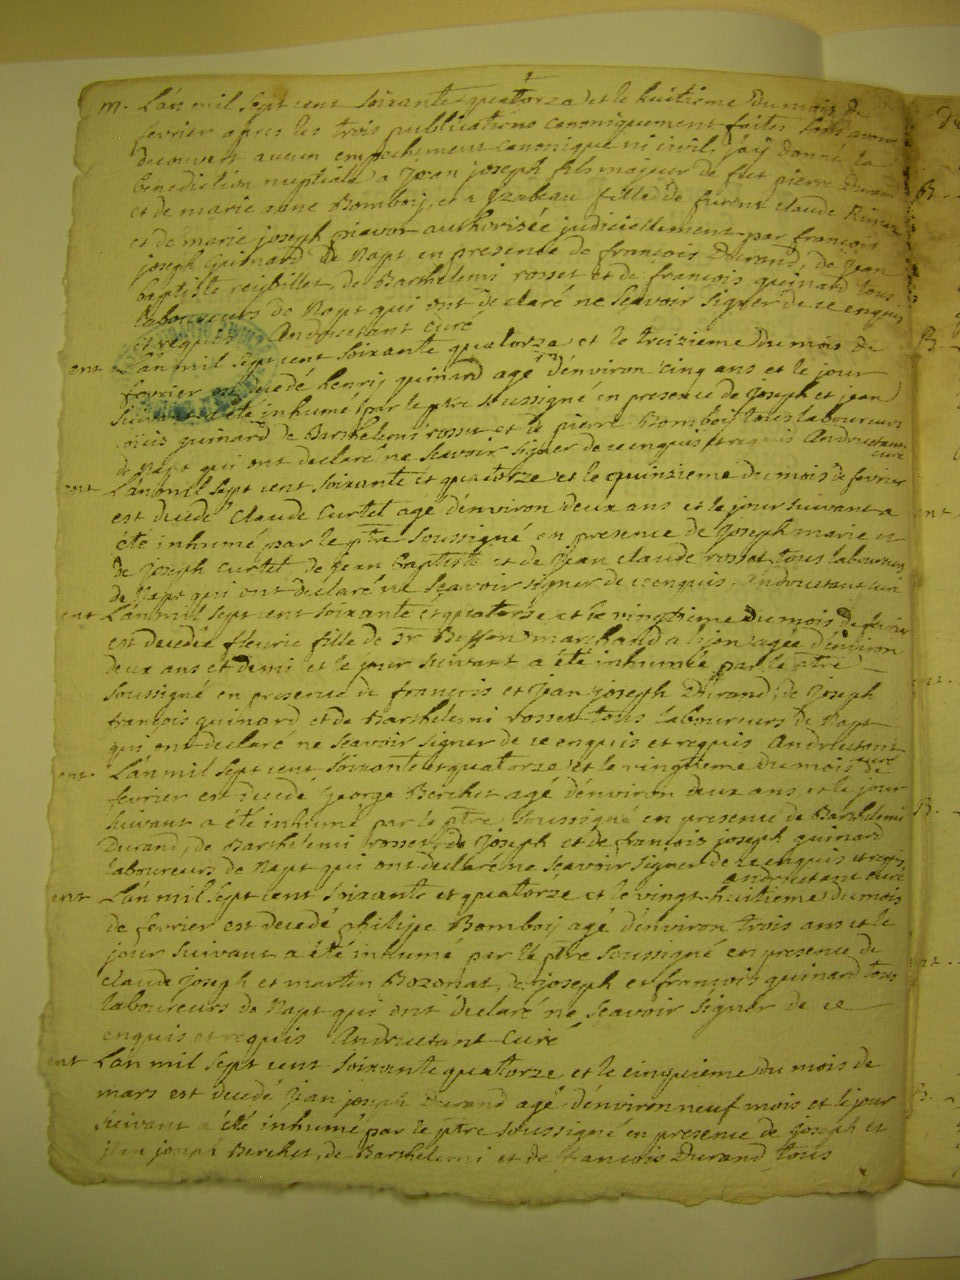 m. L'an mil sept cent soixante quatorze et le huitieme du mois de
fevrier apres les trois publications canoniquement faites sans avoir
decouvert aucun empechement canonique ni civil j'aÿ donné la
benediction nuptiale a Jean joseph fils majeur de feu pierre Durand
et de marie anne Bomboÿ, et a Yzabeau fille de furent claude
et de marie joseph authorisée judiciellement par françois
joseph Guinard de Napt, en presence de françois Durand, de Jean
baptiste reÿbillet, de Barthelemi rosset et de françois guinard tous
laboureurs de Napt qui ont declaré ne sçavoir signer de ce enquis
et requis Andructant curé
ent L'an mil sept cent soixante quatorze et le treizieme du mois de
fevrier est decedé henrÿ guinard agé d'environ cinq ans et le jour
suivant a été inhumé par le ptre soussigné en presence de Joseph et jean
guinard de Barthelemi rosset et de pierre Bomboÿ tous laboureurs
de Napt qui ont declaré ne sçavoir signer de ce enquis et requis Andructant
curé
ent L'an mil sept cent soixante et quatorze et le quinzieme du mois de fevrier
est decedé Claude Curtet agé d'environ deux ans et le jour suivant a
été inhumé par le ptre soussigné en presence de Joseph marie et
de Joseph curtet de Jean baptiste et de Jean claude rosset tous laboureurs
de Napt qui ont declaré ne sçavoir signer de ce enquis Andructant curé
ent L'an mil sept cent soixante et quatorze et le vingtieme du mois de fevrier
est decedée fleurie fille de Sr Besson marchand a lÿon agée d'environ
deux ans et demi et le jour suivant a été inhumée par le ptre
soussigné en presence de françois et Jean joseph Durand, de Joseph
françois guinard et de Barthelemi rosset tous laboureurs de Napt
qui ont declaré ne sçavoir signer de ce enquis et requis Andructant
curé
ent. L'an mil sept cent soixante et quatorze et le vingtieme du mois de
fevrier est decedé George Berchet agé d'environ deux ans, et le jour
suivant a été inhumé par le ptre soussigné en presence de Barthelemi
Durand, de Barthelemi rosset, de Joseph et de françois joseph guinard
laboureurs de Napt qui ont declaré ne sçavoir signer de ce enquis et requis
Andructant curé
ent L'an mil sept cent soixante et quatorze et le vingt huitieme du mois
de fevrier est decedé philipe Bomboÿ agé d'environ trois ans et le
jour suivant a été inhumé par le ptre soussigné en presence de
claude Joseph et martin Bozonat, de joseph et françois guinard tous
laboureurs de Napt qui ont declaré ne sçavoir signer de ce
enquis et requis Andructant Curé
ent L'an mil sept cent soixante quatorze et le cinquieme du mois de
mars est decedé Jean joseph Durand agé d'environ neuf mois et le jour
suivant a été inhumé par le ptre soussigné en presence de Joseph et
jean joseph Berchet, de Barthelemi et de françois Durand tous